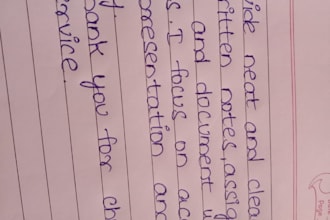 ide neat and clea
ritten notes, assig
and document
s. I focus on acc
presentation and
y.
ank you for ch
rvice.